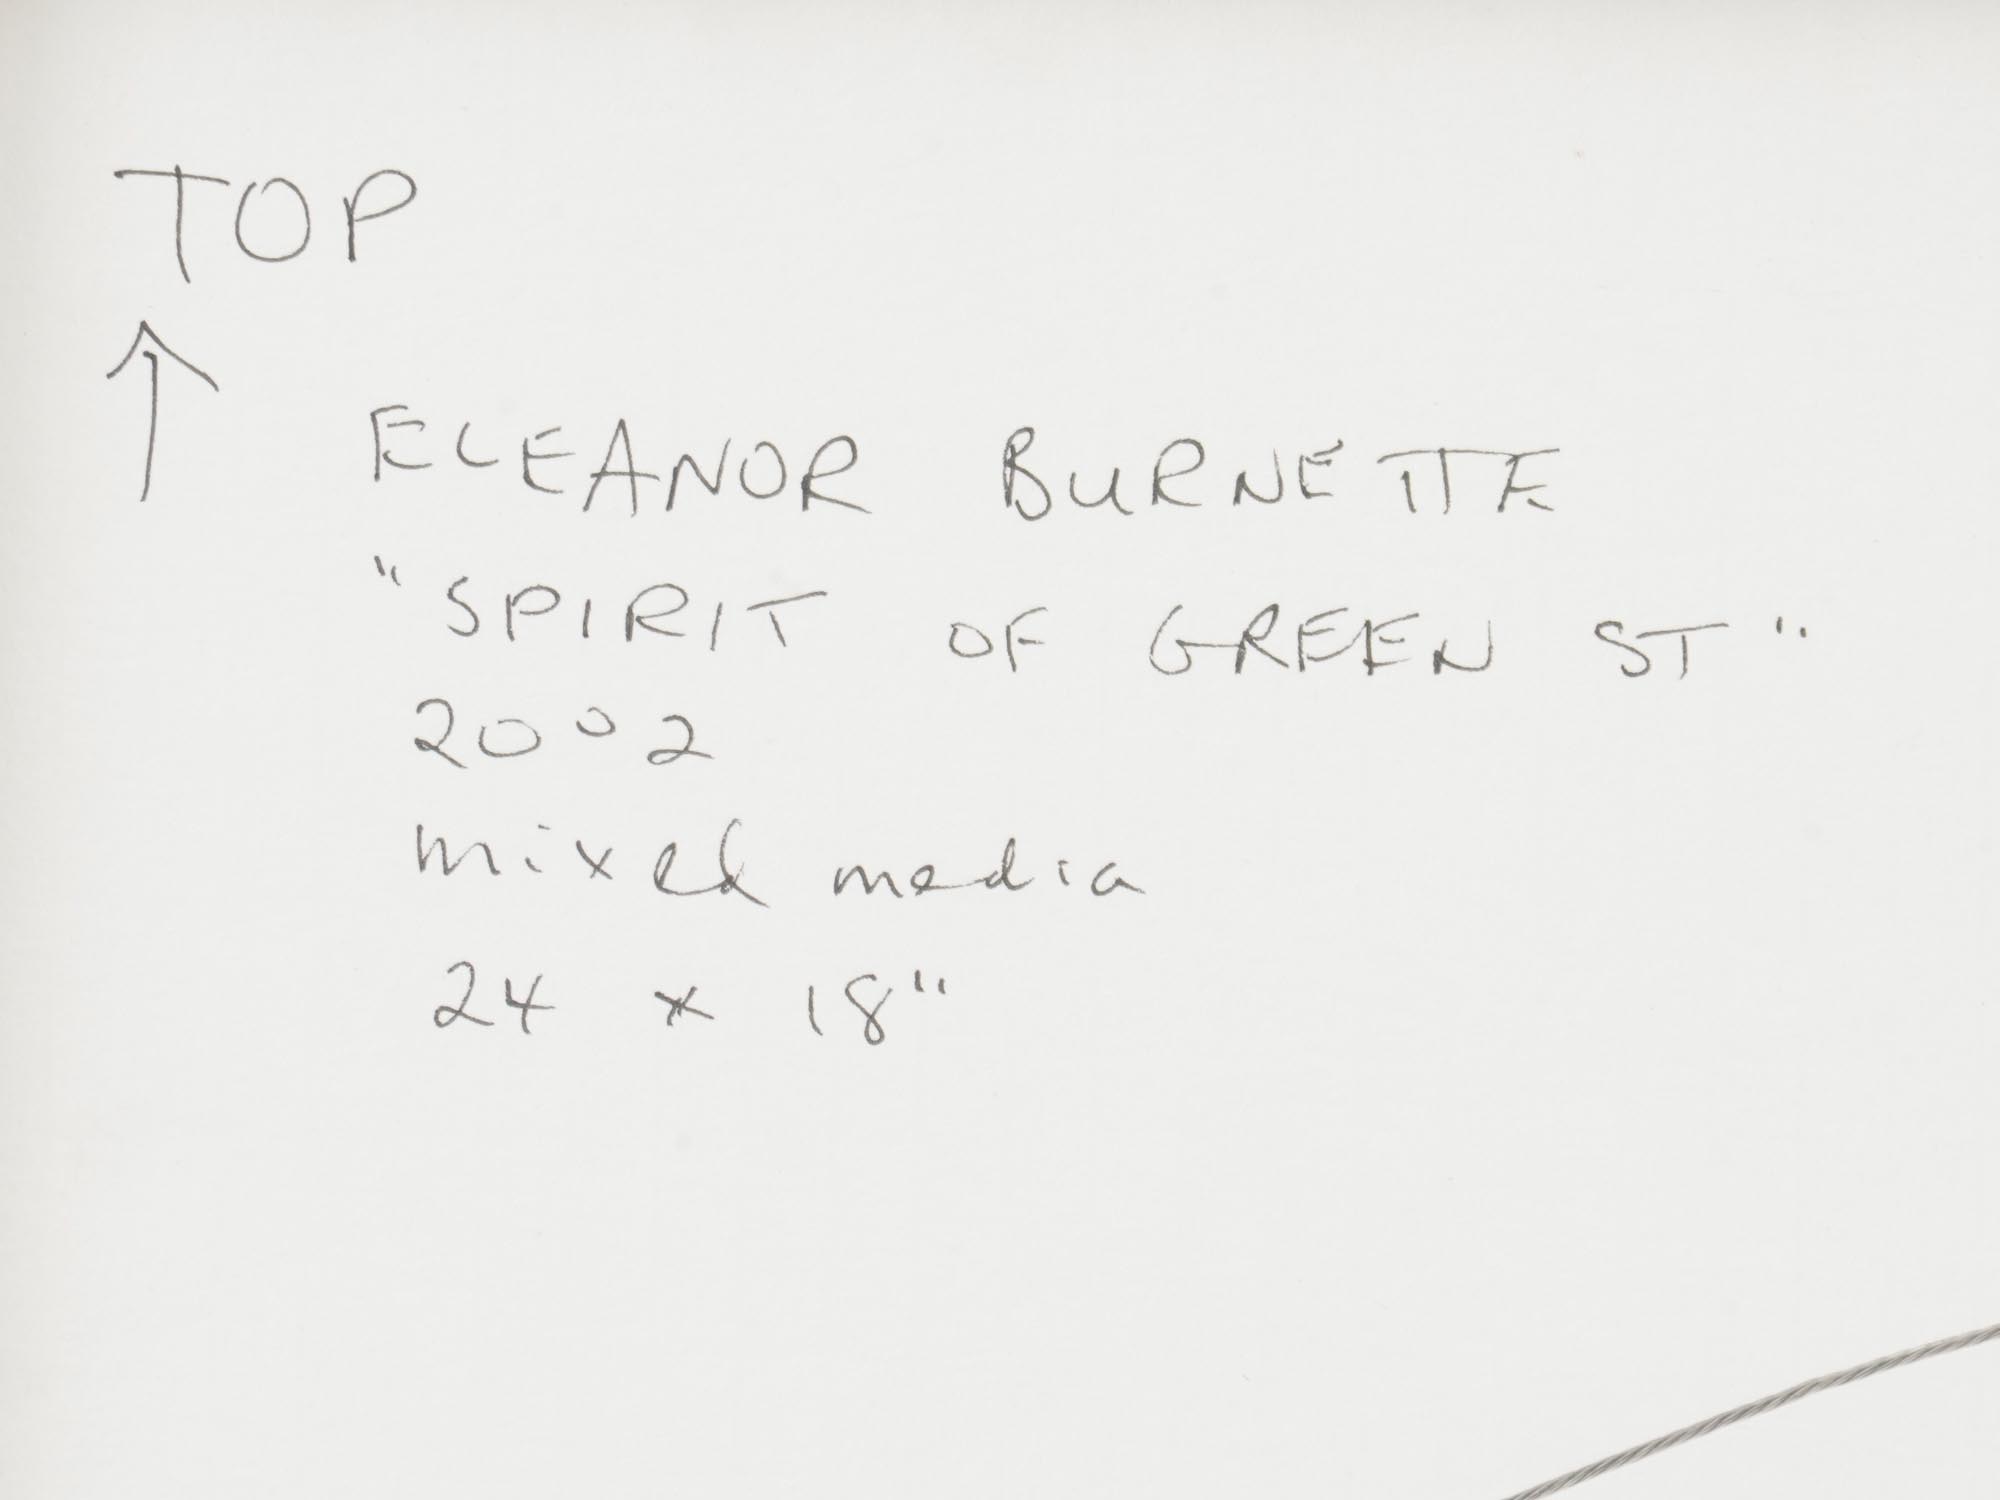 TOP
↑
ELEANOR BURNETTE
"SPIRIT OF GREEN ST"
2002
mixed media
24 x 18"